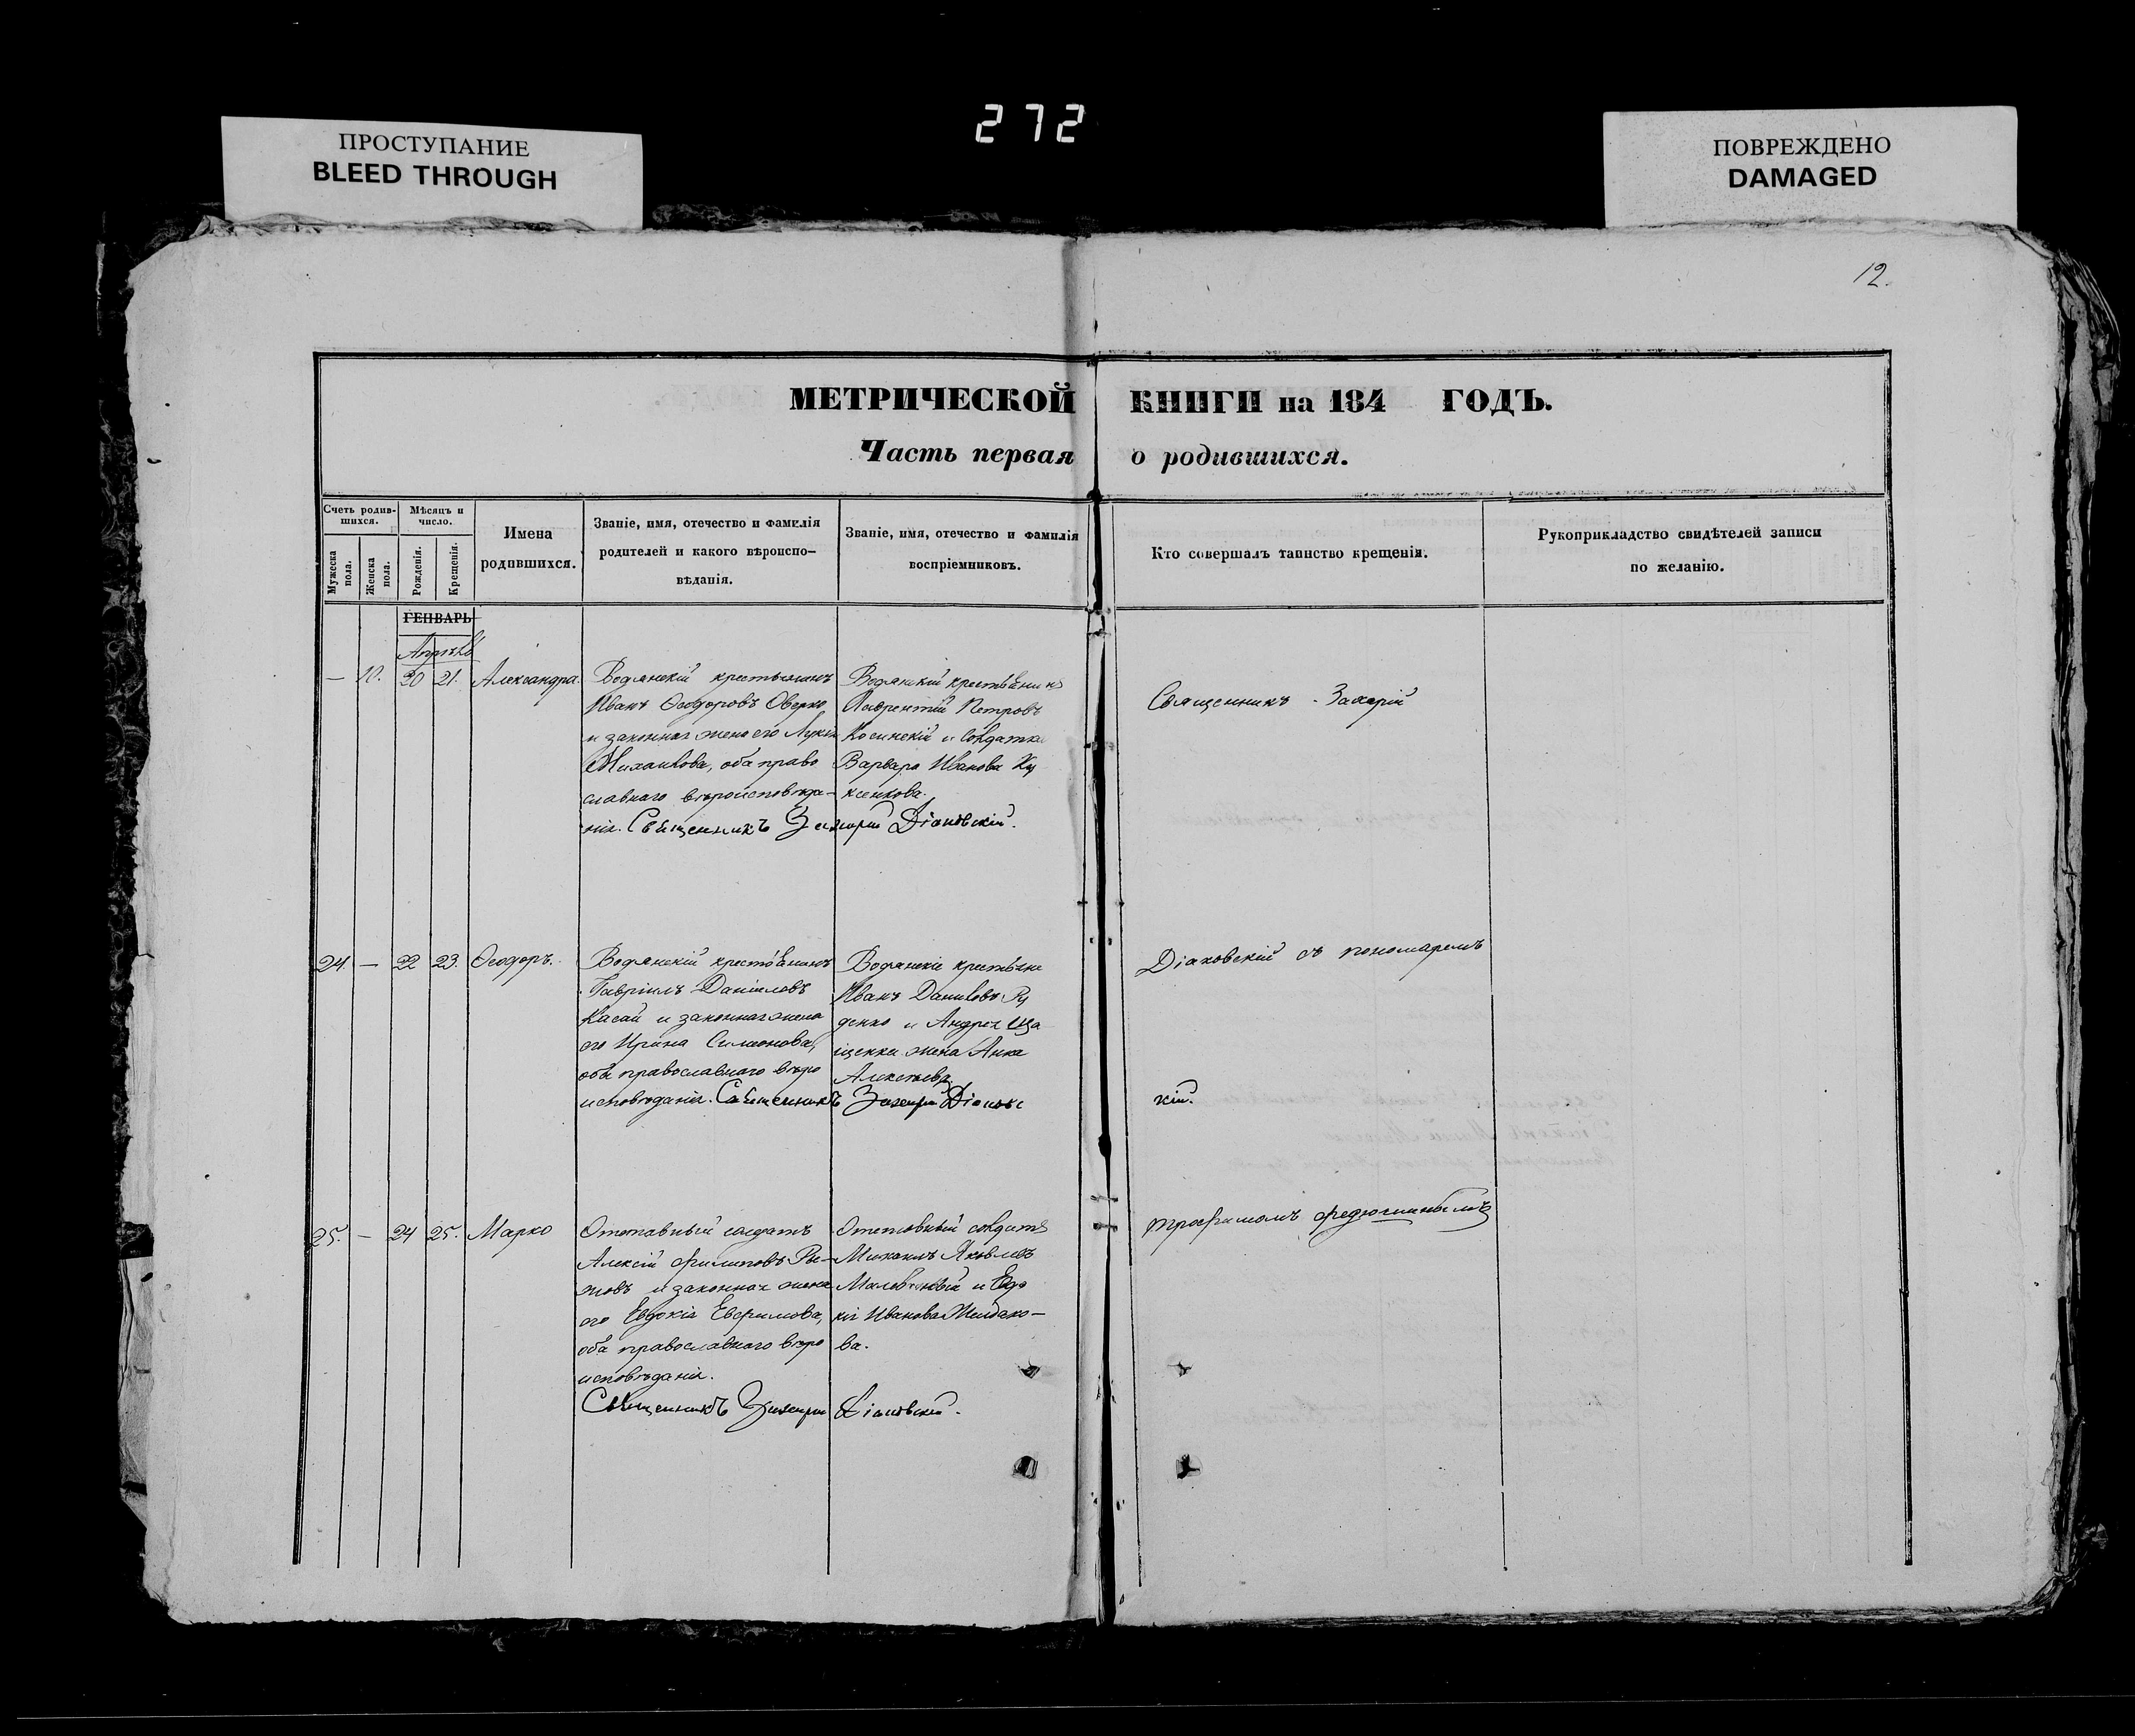 272
ПРОСТУПАНИЕ
BLEED THROUGH
ПОВРЕЖДЕНО
DAMAGED
12.
МЕТРИЧЕСКОЙ КНИГИ на 184 ГОДЪ.
Часть первая о родившихся.
Счетъ родив-
шихся.
Мѣсяцъ и
число.
Мужеска
пола.
Женска
пола.
Рожденія.
Крещенія.
Имена
родившихся.
Званіе, имя, отечество и фамилія
родителей и какого вѣроиспо-
вѣданія.
Званіе, имя, отечество и фамилія
воспріемниковъ.
Кто совершалъ таинство крещенія.
Рукоприкладство свидѣтелей записи
по желанію.
ГЕНВАРЬ
— 10. 20 21. Александра.
Водянскій крестьянинъ
Иванъ Ѳеодоровъ Оверко
и законная жена его
Михайлова, оба право
славнаго вѣроисповѣда-
нія. Священникъ Захарій Діаковскій.
Водянскій крестьянинъ
Лаврентій Петровъ
Косинскій и солдатка
Варвара Иванова
Священникъ Захарій
24. — 22 23. Ѳеодоръ.
Водянскій крестьянинъ
Гавріилъ Даніиловъ
Касай и законная жена
его Ирина Симеонова,
оба православнаго вѣро
исповѣданія. Священникъ Захарій Діаковс
кій.
Водянскіе крестьяне
Иванъ Даниловъ Ру
денко и Андрея
щенка жена Анна
Алексѣева
Діаковскій съ пономаремъ
25. — 24 25. Марко
Отставный солдатъ
Алексій Филиповъ Ры-
жовъ и законная жена
его Евдокія Евфимова,
оба православнаго вѣро
исповѣданія.
Священникъ Захарій Діаковскій.
Отставный солдатъ
Михаилъ Яковлевъ
и Евдо
кія Иванова
ва.
Трофимомъ Федюшинымъ